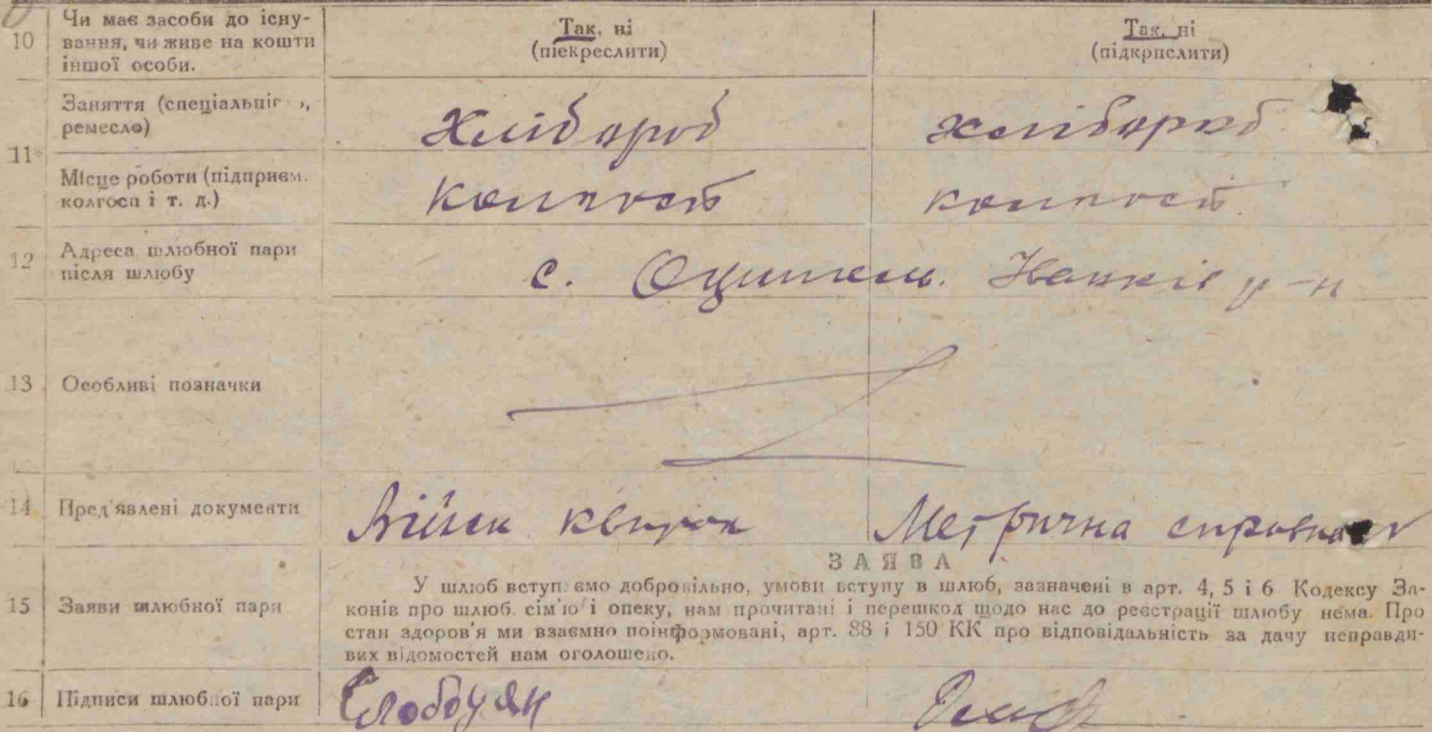 10 Чи має засоби до існу-
вання, чи живе на кошти
іншої особи.
Так, ні
(піекреслити)
Так, ні
(підкрпслити)
11* Заняття (спеціальніс ,
ремесло)
Хлібороб хлібороб
Місце роботи (підприєм.
колгосп і т. д.)
Колгосп колгосп
12 Адреса шлюбної пари
після шлюбу
с. Оцитель. р-н
13 Особливі позначки
14 Пред'явлені документи Військ квиток Метрична справка
ЗАЯВА
15 Заяви шлюбної пари
У шлюб вступ ємо добровільно, умови вступу в шлюб, зазначені в арт. 4, 5 і 6 Кодексу За-
конів про шлюб. сім'ю і опеку, нам прочитані і перешкод щодо нас до реєстрації шлюбу нема. Про
стан здоров'я ми взаємно поінформовані, арт. 88 і 150 КК про відповідальність за дачу неправди-
вих відомостей нам оголошено.
16 Підписи шлюбної пари Слободян